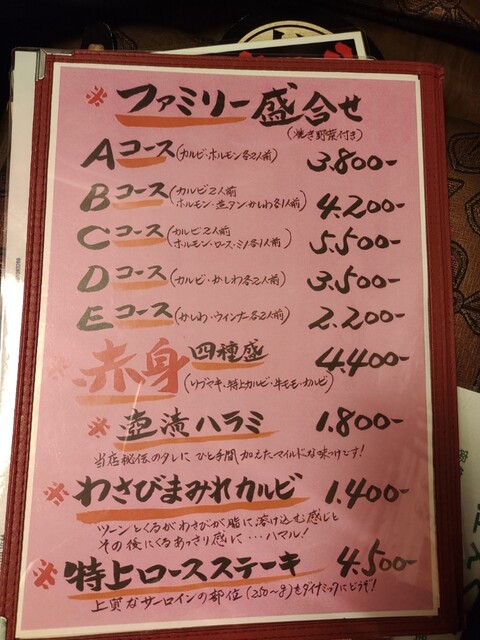 ファミリー盛合せ
(焼き野菜付き)
Aコース(カルビ・ホルモン各2人前) 3.800-
Bコース(カルビ2人前
ホルモン・塩タン・かしわ各1人前) 4.200-
Cコース(カルビ2人前
ホルモン・ロース・ミノ各1人前) 5.500-
Dコース(カルビ・かしわ各2人前) 3.500-
Eコース(かしわ・ウインナー各2人前) 2.200-
赤身四種盛 4.400-
(リブマキ・特上カルビ・牛モモ・カルビ)
壺漬ハラミ 1.800-
当店秘伝のタレにひと手間加えたマイルドな味つけです!
わさびまみれカルビ 1.400-
ツーンとくるがわさびが脂に溶け込む感じと
その後にくるあっさり感に…ハマル!
特上ロースステーキ 4.500-
上質なサーロインの部位(250〜g)をダイナミックにどうぞ!